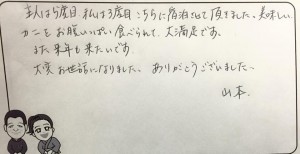 主人は5度目、私は3度目こちらに宿泊させて頂きました。美味しい
カニをお腹いっぱい食べられて、大満足です。
また来年も来たいです。
大変お世話になりました。ありがとうございました。
山本.